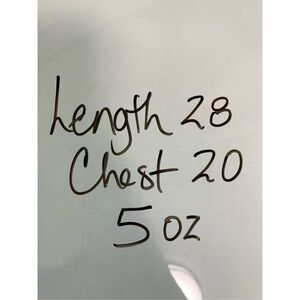 Length 28
Chest 20
5 oz